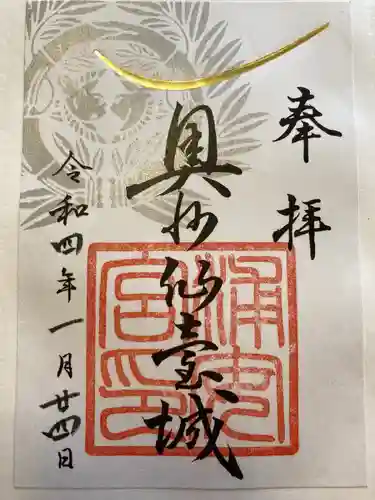 奉拝
奥州仙臺城
令和四年一月廿四日